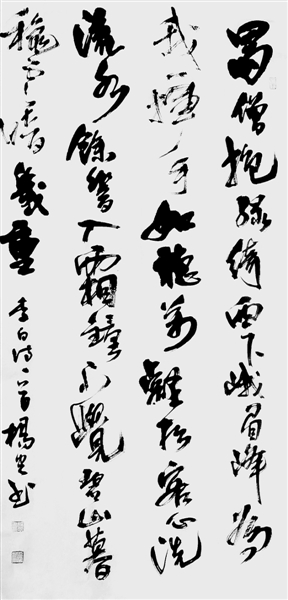 蜀僧抱綠綺西下峨眉峰為
我一揮手如聽萬壑松客心洗
流水餘響入霜鐘不覺碧山暮
秋雲暗幾重
李白詩一首楊書